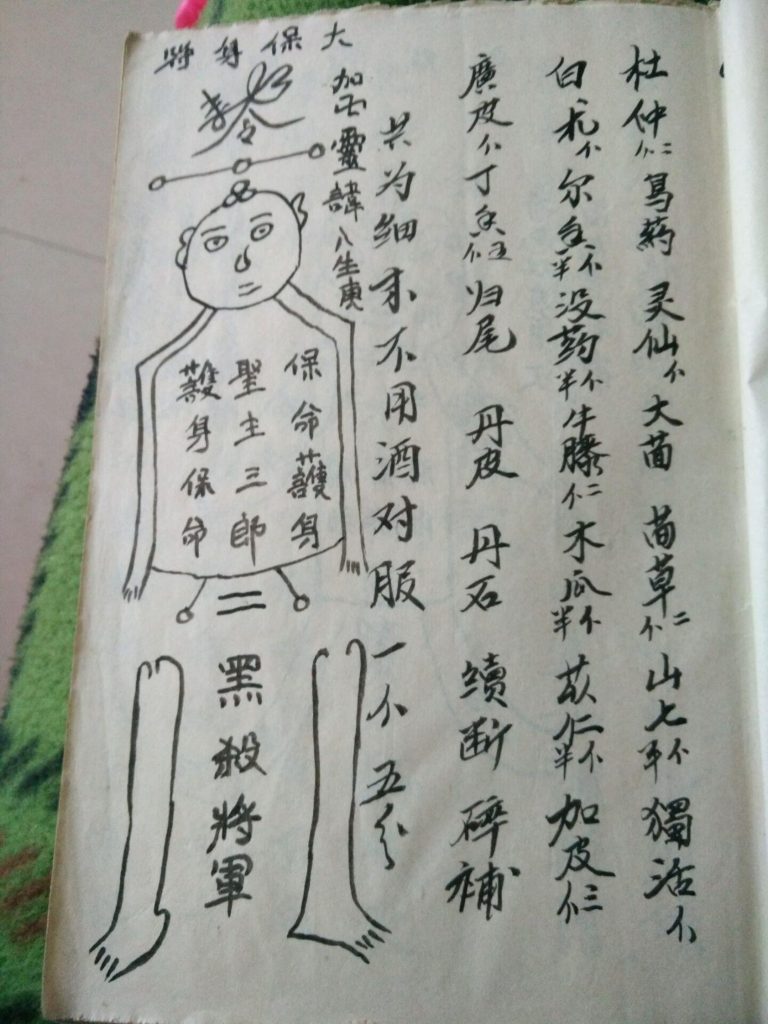 杜仲仁二 烏药 灵仙个 大茴 茴草二个 山七半个 獨活个
白朮个 尔息半个 没药半个 牛膝二仁 木瓜半个 苡仁半个 加皮三个
廣皮个 丁香 归尾 丹皮 丹石 續断 碎補
共为细末不用酒对服一个五分
大保身將
加正靈諱八生庚
保命護身
聖主三郎
護身保命
黑殺將軍